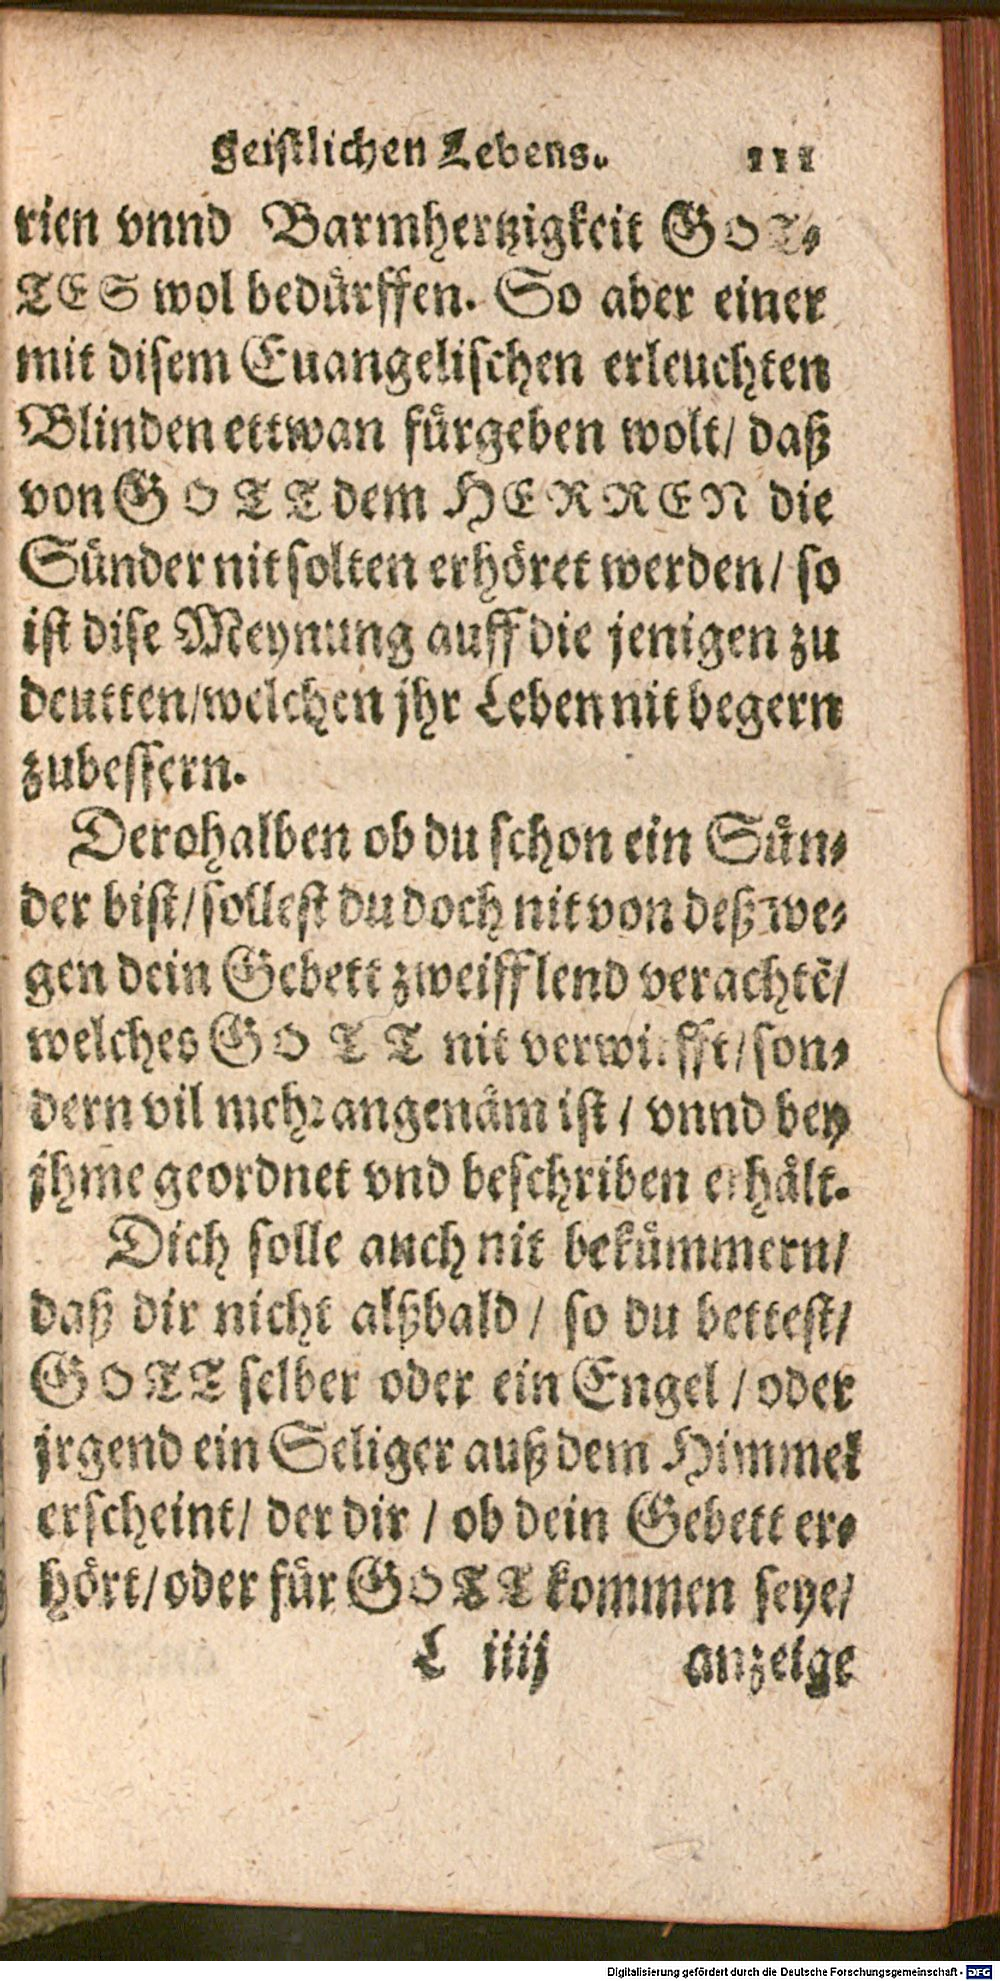 geistlichen Lebens. 111
rien vnnd Barmhertzigkeit GOT-
TES wol bedürffen. So aber einer
mit disem Euangelischen erleuchten
Blinden ettwan fürgeben wolt/ daß
von GOTT dem HERREN die
Sünder nit solten erhöret werden/ so
ist dise Meynung auff die jenigen zu
deutten/welchen jhr Leben nit begern
zubessern.
Derohalben ob du schon ein Sün-
der bist/sollest du doch nit von deß we-
gen dein Gebett zweifflend verachtē/
welches GOTT nit verwirfft/son-
dern vil mehr angenäm ist / vnnd bey
jhme geordnet vnd beschriben erhält.
Dich solle auch nit bekümmern/
daß dir nicht alßbald / so du bettest/
GOTT selber oder ein Engel / oder
jrgend ein Seliger auß dem Himmel
erscheint/ der dir / ob dein Gebett er-
hört/oder für GOTT kommen seye/
L iiij anzeige
Digitalisierung gefördert durch die Deutsche Forschungsgemeinschaft - DFG